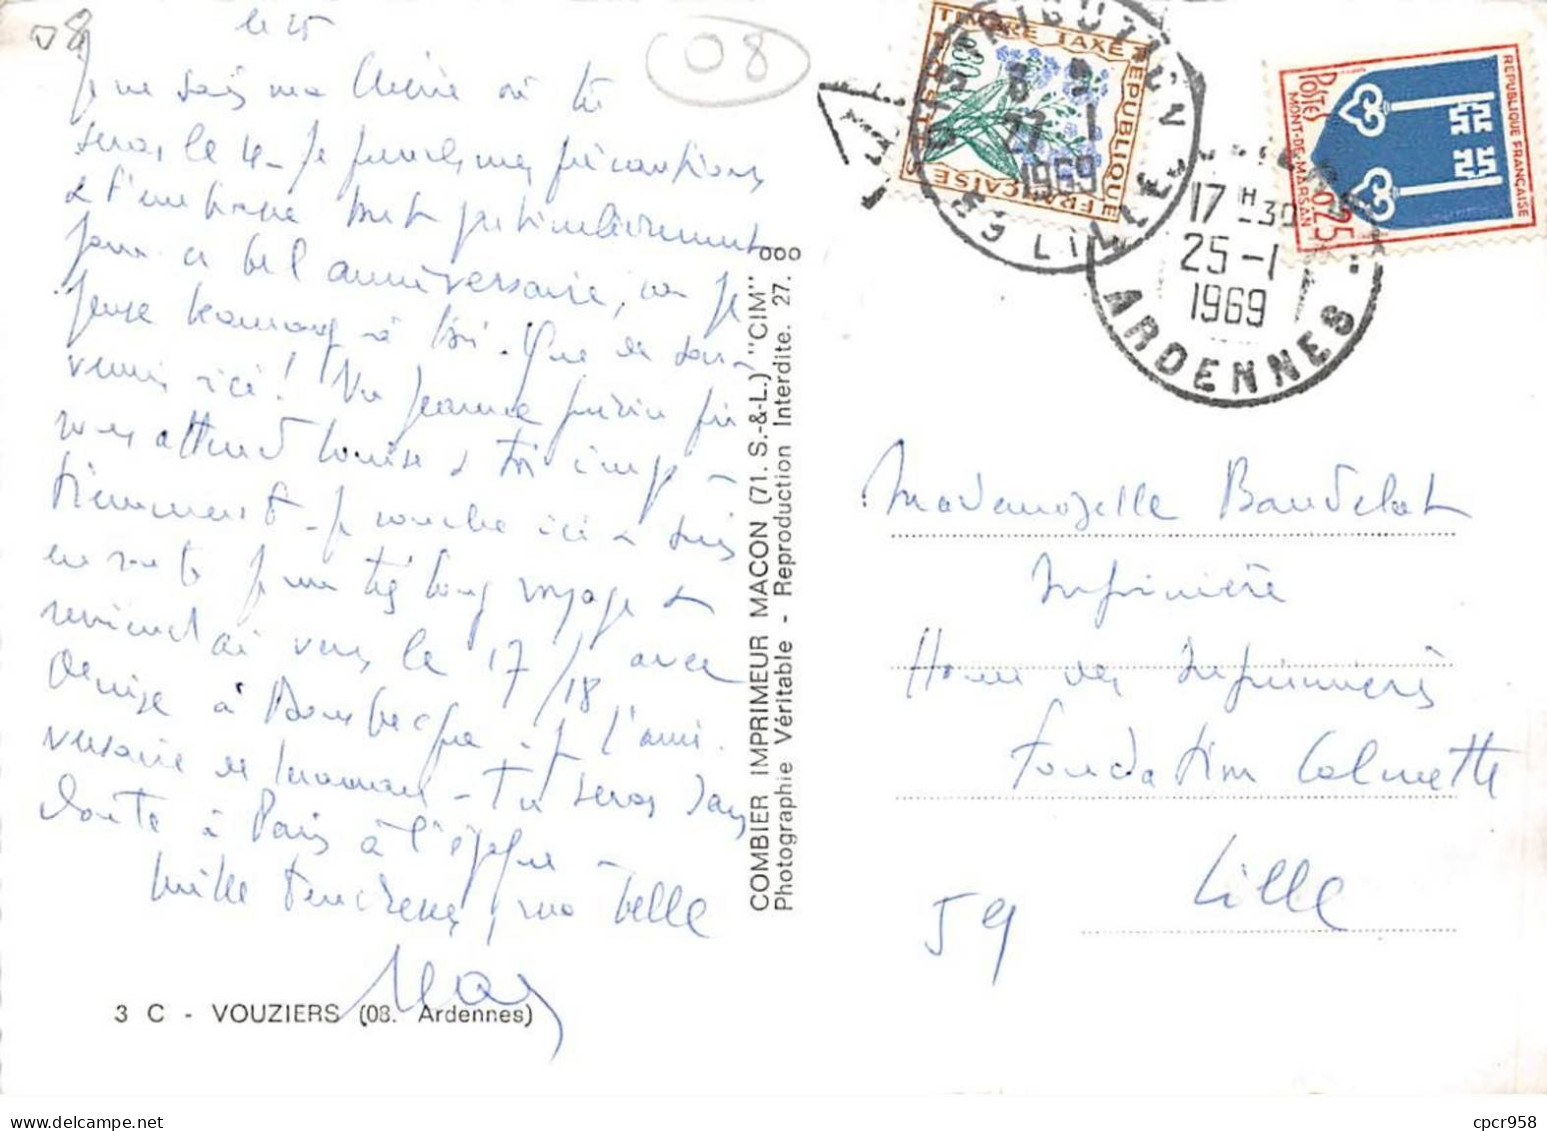 08
le 25
08
Je ne sais ma Chérie où tu
seras le 4 - Je prends mes précautions
& t'embrasse tout particulièrement
pour ce bel anniversaire, où je
pense beaucoup à toi. Que de sou-
venirs ici !
vous attend Louise & toi impa-
tiemment - Je couche ici & suis
en route pour un très long voyage &
reviendrai vers le 17/18 avec
Denise à pr l'anni-
versaire de maman - Tu seras sans
doute à Paris à l'époque -
Mille tendresses, ma belle
3 C - VOUZIERS (08. Ardennes)
COMBIER IMPRIMEUR MACON (71. S.-&-L.) "CIM"
Photographie Véritable - Reproduction Interdite. 27. 000
TIMBRE TAXE
REPUBLIQUE FRANÇAISE
POSTES
8 H
27 - 1
1969
DISTRIBUTION
59 LILLE
REPUBLIQUE FRANÇAISE
POSTES
MONT-DE-MARSAN
0,25
17 H 30
25 - 1
1969
ARDENNES
Mademoiselle Baudelot
Infirmière
Home des Infirmières
Fondation Calmette
59 Lille
cpcr958